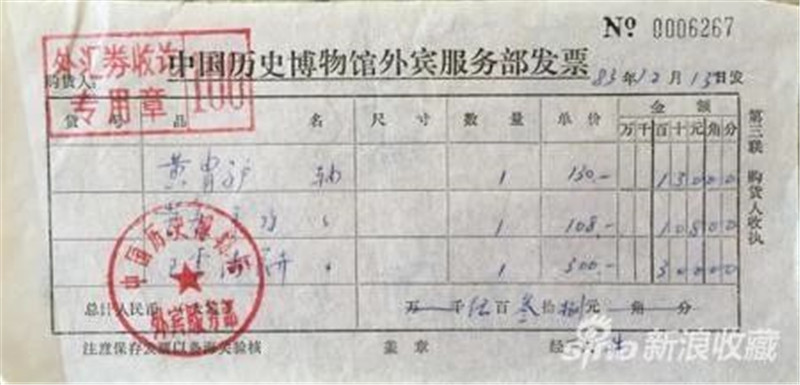 № 0006267
外汇券收讫
专用章
100
中国历史博物馆外宾服务部发票
购货人: 83年12月13日发
货号 品名 尺寸 数量 单价 金额
万千百十元角分
黄胄驴 轴 1 130.- 13000
1 108.- 10800
1 300.- 30000
总计人民币 万 千伍百叁拾捌元 角 分
中国历史博物馆
外宾服务部
注意保存发票以备海关验核 盖章 经手
第三联 购货人收执
sina 新浪收藏